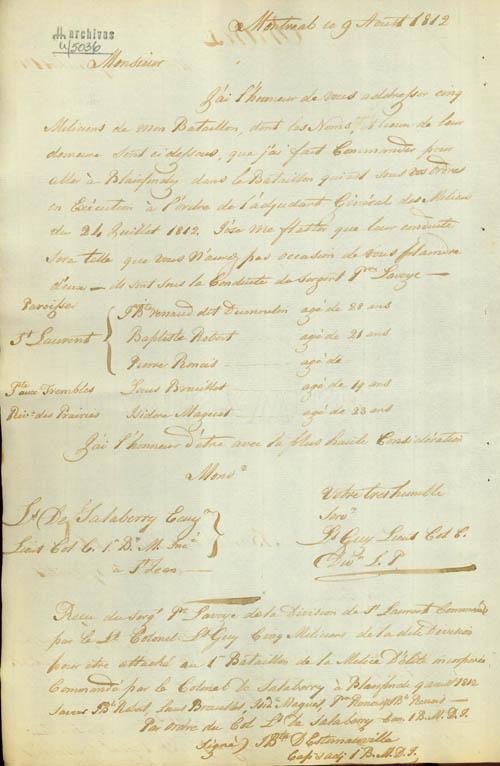 Montreal ce 9 Aoust 1812
archives
U/5036
Monsieur
J'ai l'honneur de vous addresser cinq
Miliciens de mon Bataillon, dont les Noms et lieux de leur
demeure sont ci dessous, que j'ai fait Commander pour
aller à Blairfindy dans le Bataillon qui est sous vos ordres
en Exécution à l'ordre de l'adjudant Général des Milices
du 24 Juillet 1812. J'ose me flatter que leur conduite
sera telle que vous n'aurez pas occasion de vous plaindre
d'eux — ils sont sous la Conduite du Sergent Lavoye —
Paroisses
St Laurent
dit Dumoulin agé de 28 ans
Baptiste Robert agé de 21 ans
Pierre agé de
Pte aux Trembles Louis Brouillet agé de 19 ans
Riv. des Prairies Isidore Maguet agé de 23 ans
J'ai l'honneur d'être avec la plus haute Considération
Monsr
Votre très humble
Servr
De Salaberry Ecuyr
Lieut Col C. 1r B. M. Incé
à St Jean
Ls Guy Lieut Col C.
Divn S. L
Recu du Sergt Lavoye de la Division de St Laurent Commandé
par le Lt Colonel Ls Guy Cinq Miliciens de la dite Division
pour être attaché au 1r Bataillon de la Milice D'Elite incorporée
Commandé par le Colonel de Salaberry à Blairfindy 9 aout 1812
Savoir Bt Robert, Louis Brouillet, Isid Maguet, Pre
Par Ordre du Col. Lt de Salaberry Com 1 B. M. D. I.
Signé) JBte D'Estimauville
Capt adj. 1 B. M. D. I.